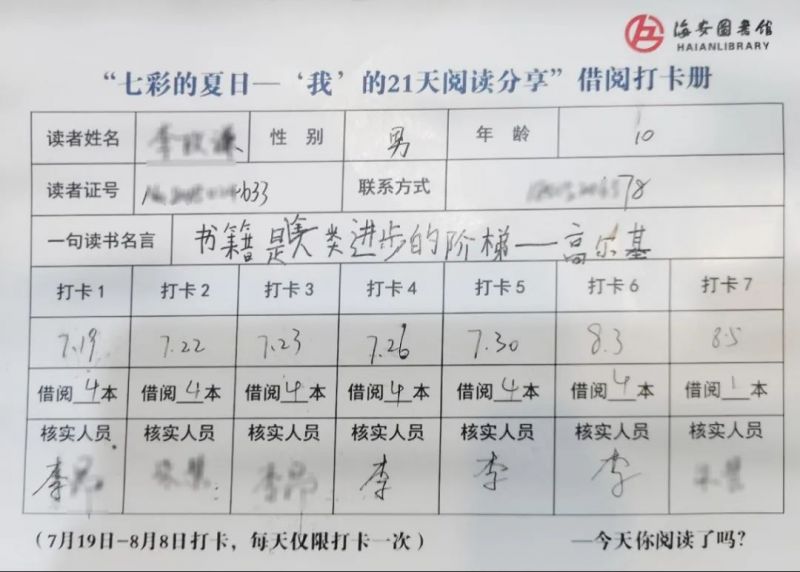 海安图书馆
HAIANLIBRARY
“七彩的夏日—‘我’的21天阅读分享”借阅打卡册
读者姓名 性 别 男 年 龄 10
读者证号 633 联系方式 78
一句读书名言 书籍是人类进步的阶梯——高尔基
打卡1 打卡2 打卡3 打卡4 打卡5 打卡6 打卡7
7.19 7.22 7.23 7.26 7.30 8.3 8.5
借阅4本 借阅4本 借阅4本 借阅4本 借阅4本 借阅4本 借阅1本
核实人员 核实人员 核实人员 核实人员 核实人员 核实人员 核实人员
李 李 李 李 李
(7月19日-8月8日打卡，每天仅限打卡一次) —今天你阅读了吗?